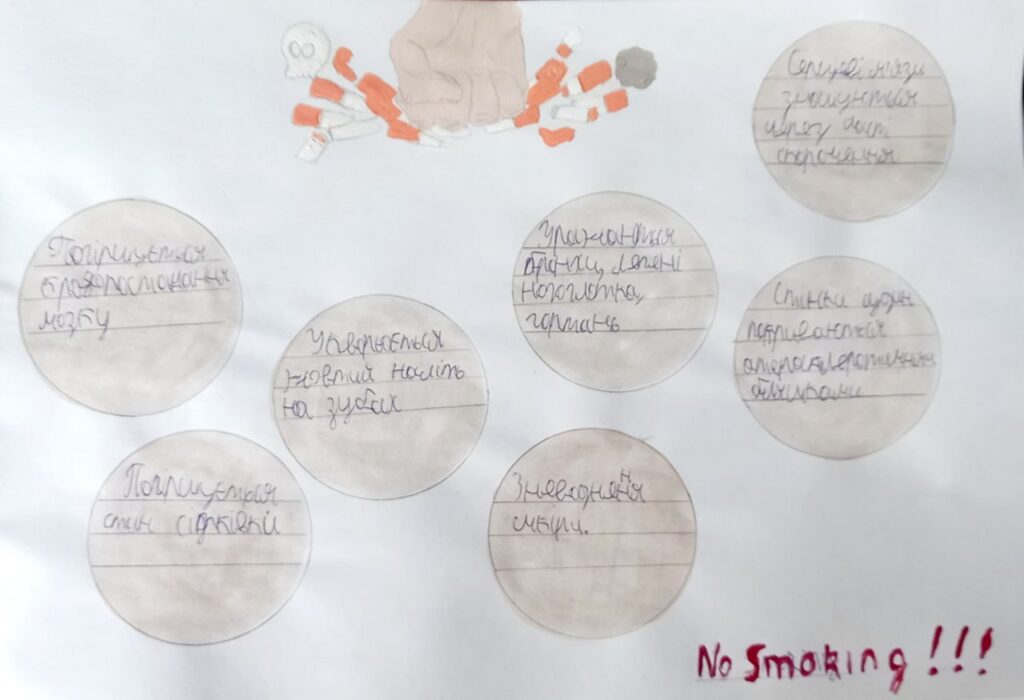 Серцеві м'язи
зношуються
через часті
скорочення
Погіршується
кровопостачання
мозку
Утворюється
жовтий наліть
на зубах
Уражаються
бронхи, легені
носоглотка,
гортань
Стінки судин
покриваються
атеросклеротичними
бляшками
Погіршується
стан сітківки
Зневоднення
шкіри.
No Smoking !!!